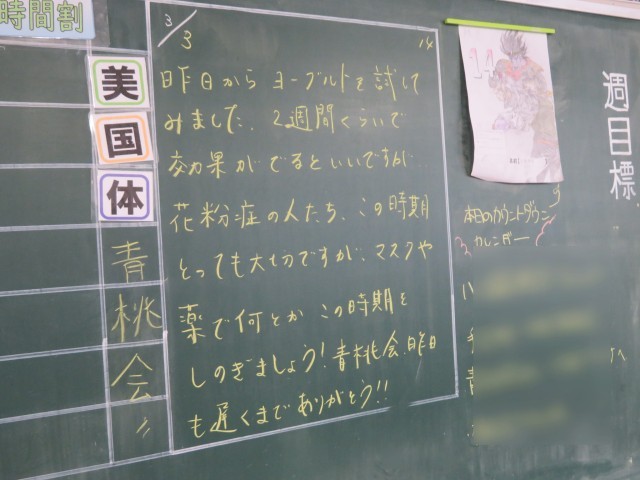 時間割
美
国
体
青
桃
会
〃
3/3
14
昨日からヨーグルトを試して
みました。2週間くらいで
効果がでるといいですが…
花粉症の人たち、この時期
とっても大切ですが、マスクや
薬で何とかこの時期を
しのぎましょう!青桃会、昨日
も遅くまでありがとう!!
14
本日のカウントダウン
カレンダー
週目標